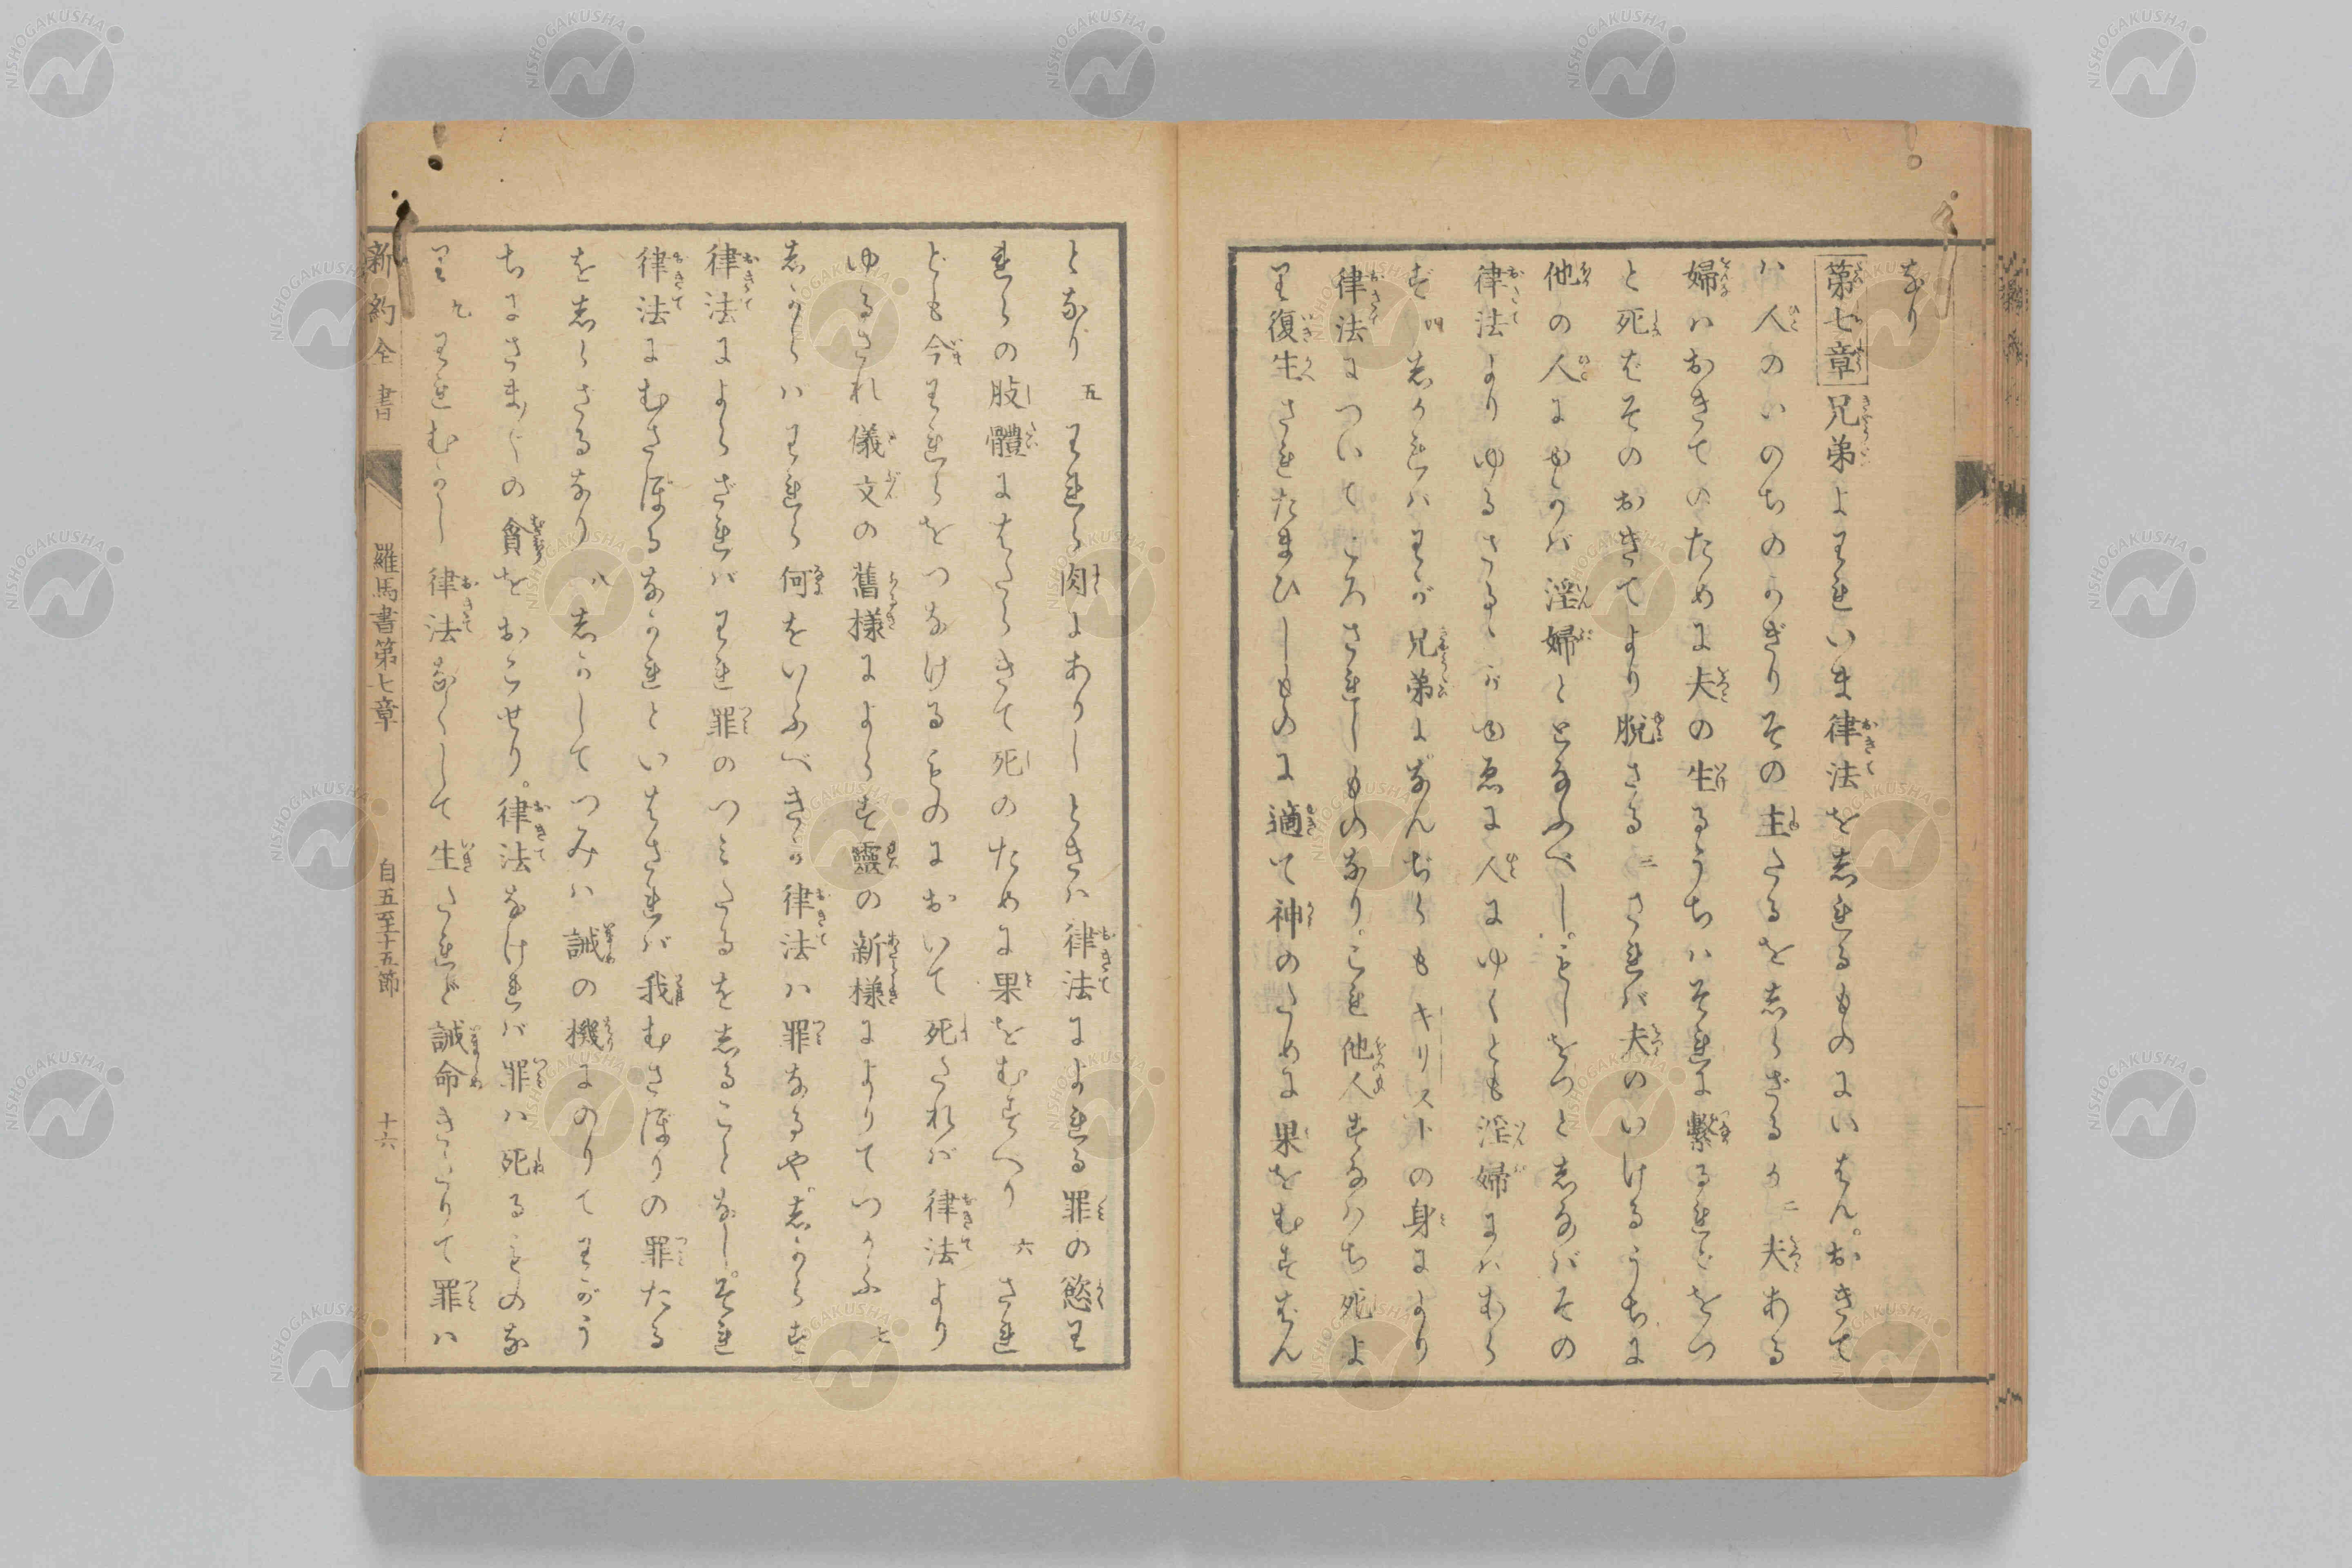 なり
第七章 兄弟よわれいま律法を志れるものにいはん。おきて
ハ人のいのちのかぎりその主たるを志らざるか 二 夫ある
婦ハおきてのために夫の生るうちハそれに繋るれどをつ
と死ばそのおきてより脱さる 三 されバ夫のいけるうちに
他の人にゆかバ淫婦ととなふべし。もしをつと志なバその
律法よりゆるさるゝがゆゑに人にゆくとも淫婦にハあら
ず 四 志かれハわが兄弟よなんぢらもキリストの身により
律法についてころされしものなり。これ他人すなハち死よ
り復生されたまひしものに適て神のために果をむすばん
となり 五 われら肉にありしときハ律法によれる罪の慾わ
れらの肢體にはたらきて死のために果をむすべり 六 され
ども今われらをつなげるものにおいて死たれバ律法より
ゆるされ儀文の舊樣によらず靈の新樣によりてつかふ 七
志からハわれら何をいふべきか律法ハ罪なるや。志からず
律法によらざれバわれ罪のつみたるを志ることなし。それ
律法にむさぼるなかれといはされバ我むさぼりの罪たる
を志らさるなり 八 志かしてつみハ誡の機にのりてわがう
ちにさま〴〵の貪をおこせり。律法なけれバ罪ハ死るものな
り 九 われむかし律法なくして生たれど誡命きたりて罪ハ
新約全書 羅馬書第七章 自五至十五節 十六